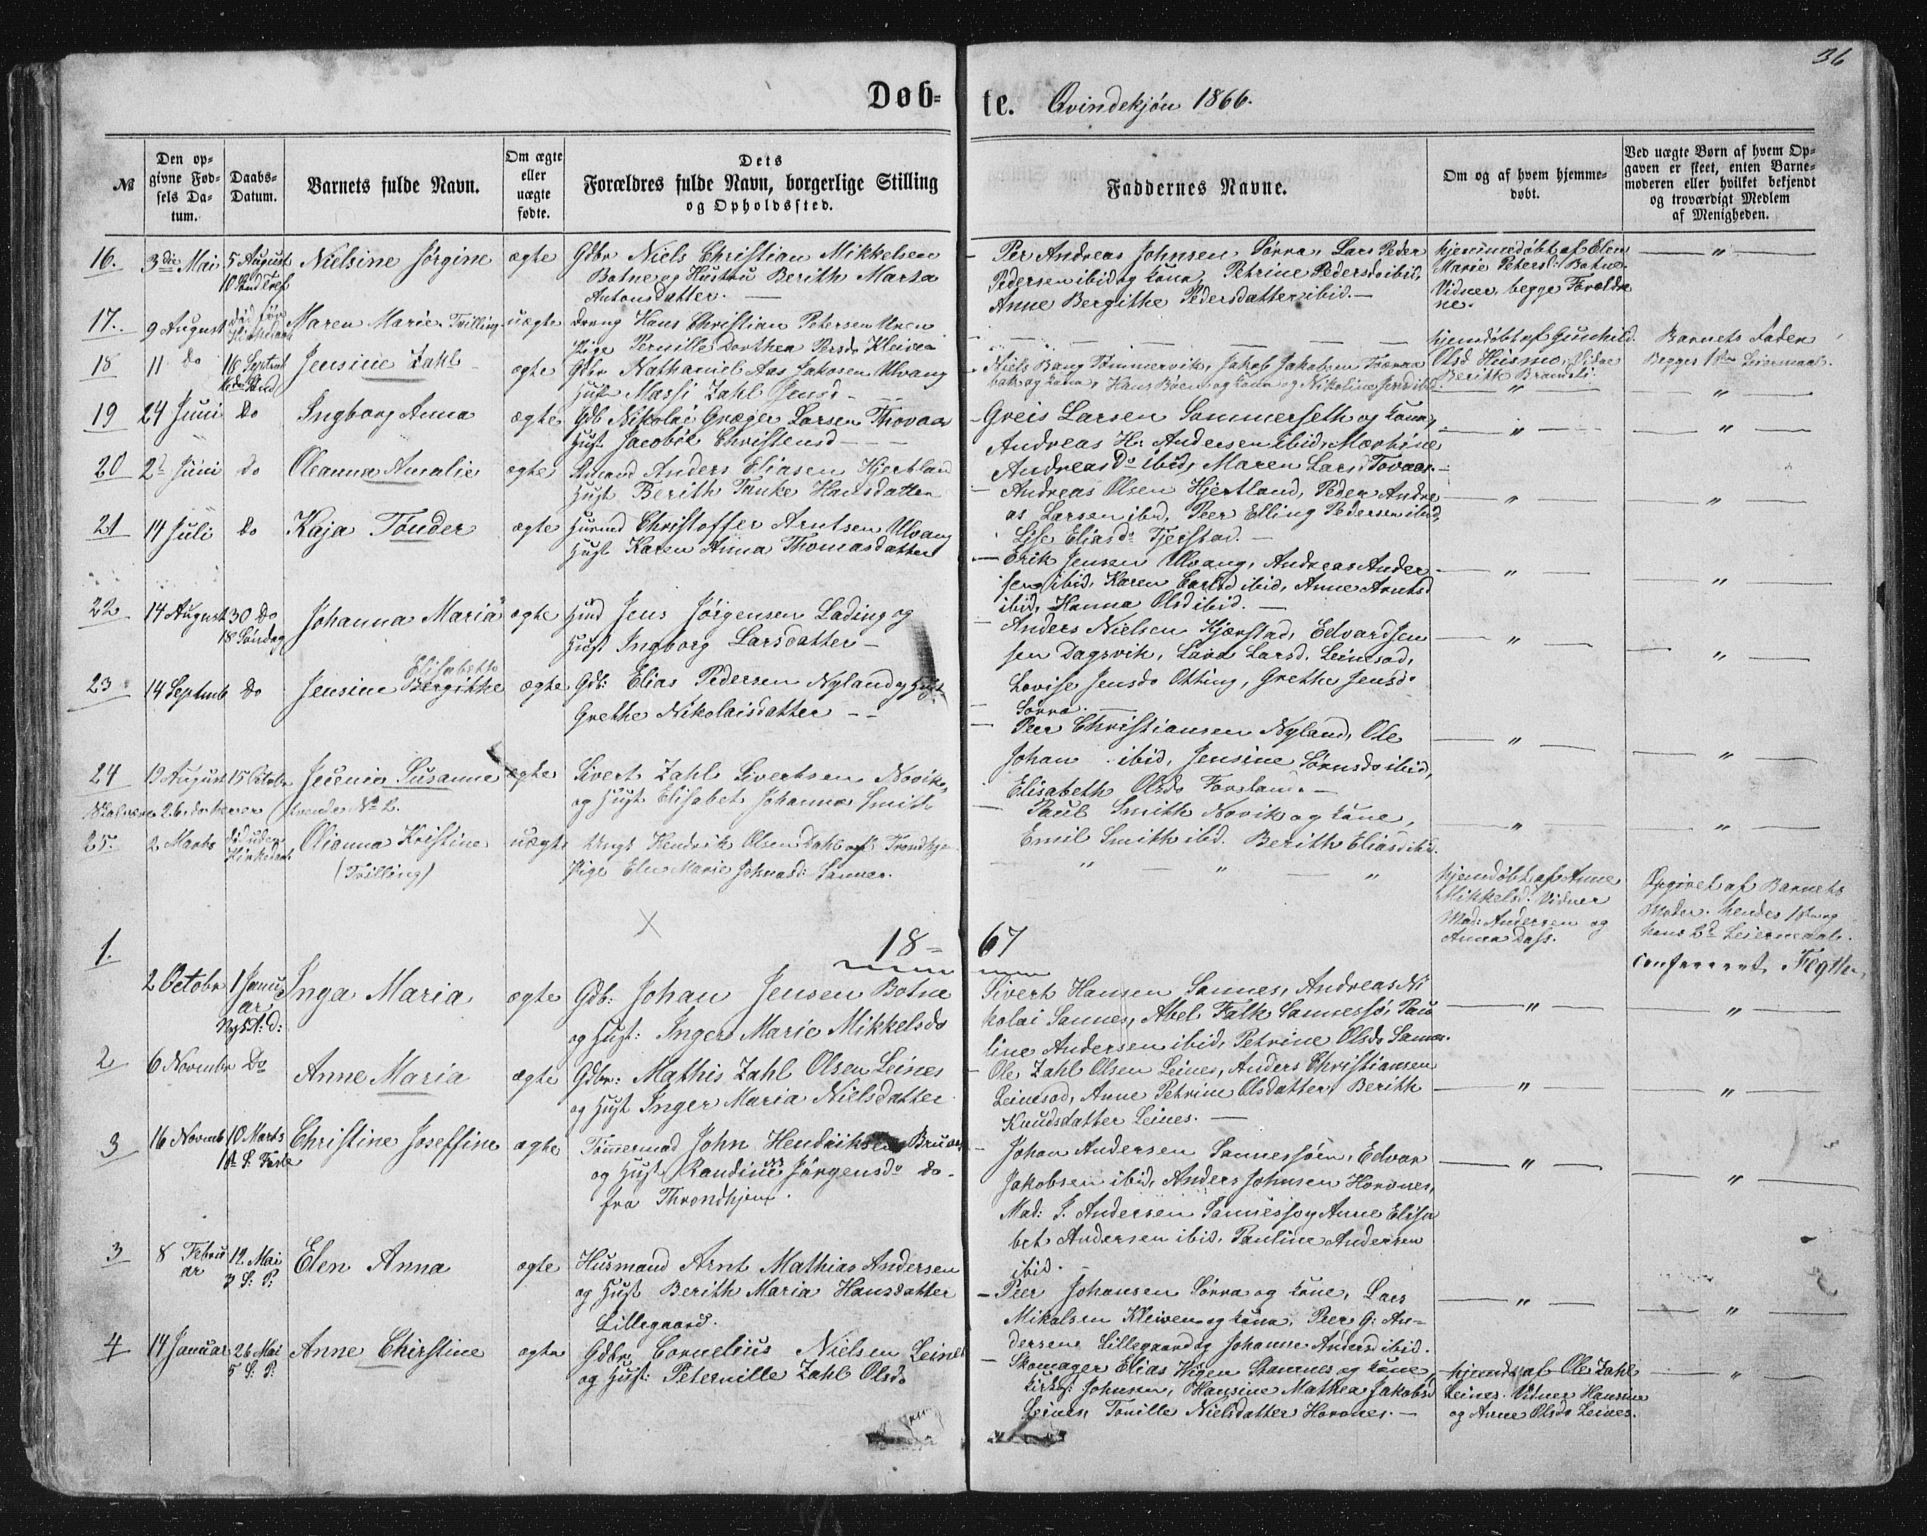 36
Døbte. Qvindekjøn 1866.
№
Den opgivne Fødsels Datum.
Daabs-Datum.
Barnets fulde Navn.
Om ægte eller uægte fødte.
Dets Forældres fulde Navn, borgerlige Stilling og Opholdssted.
Faddernes Navne.
Om og af hvem hjemmedøbt.
Ved uægte Børn af hvem Opgaven er skeet, enten Barnemoderen eller hvilket bekjendt og troværdigt Medlem af Menigheden.
16. 3die Mai 5 August Nielsine Jørgine ægte Gdbr Niels Christian Mikkelsen
Botne og Hustru Berith Marta
Antonsdatter. —
— Per Andreas Johnsen, Sørra, Lars Peder
Pedersen ibid og kone, Petrine Pedersd ibid,
Anne Bergithe Pedersdatter ibid. —
hjemmedøbt af Elen
Marie Petersd: Botne.
Vidner, begge Forældre
ne.
17. 9 August død før Maren Marie. Trilling uægte Dreng Hans Christian Petersen
Pige Pernille Dorthea Persd: Kleiven
hjemdøbt af Gunhild
Olsd Husmo, Vidne
Berith
Barnets Fader
Begges 1ste Leiermaal.
18 11 Do 16 Septbr Jensine Zahl ægte Gdbr Nathaniel Aas Jakosen Ulvang
Hust Massi Zahl Jensd —
— Niels Bang Tømmervik, Jakob Jakobsen Tovaa
og kone, Hans og kone og Nikoline
19 24 Juni Do Ingborg Anna ægte Gdb Nikolai Græger Larsen Thovaas
Hust Jacobie Christensd — —
— Greis Larsen Sommerseth og kone,
Andreas H: Andersen ibid, Marthine
Andreasd: ibid, Maren Larsd Tovaas. —
20 2d Juni Do Oleanna Amalie ægte Anders Eliasen Hjertland
Hust Berith Tanke Hansdatter
— Andreas Olsen Hjertland, Peder Andre
as Larsen ibid, Peer Elling Pedersen ibid,
Lise Eliasd: Fjerstad. —
21 14 Juli Do Kaja Tønder ægte Husmd Christoffer Arntsen Ulvang
Hust Karen Anna Thomasdatter
— Erik Jensen Ulvang, Andreas Ander
sen ibid, Karen Carlsd ibid, Anne Arntsd
ibid, Hanna Olsd ibid. —
22 14 August 30 Do Johanna Maria ægte Hmd Jens Jørgensen Lading og
18 Søndag
Hust Ingborg Larsdatter —
— Anders Nielsen Hjærstad, Edvard Jen
sen Dagsvik, Lava Larsd. Leinesod,
Lovise Jensd: Otting, Grethe Jensd:
Sørra. —
23 14 Septmb Do Jensine Elisabeth Bergithe ægte Gdb: Elias Pedersen Nyland og Hust
Grethe Nikolaisdatter — —
— Peer Christiansen Nyland, Ole
Johan ibid, Jensine Sørnsd: ibid,
Elisabeth Olsd: Forland. —
24 19 August 15 Octobr Jesenia Susanne ægte Sivert Zahl Sivertsen Novik
og Hust Elisabet Johanna Smith
— Paul Smith Novik og kone,
Emil Smith ibid. Berith Eliasd ibid.
25. 2 Marts død uden Olianna Kristine uægte Ungk Hendrik Olsen Dahl af Trondhjem
(Trilling)
Pige Elen Marie Johnasd: Sannes.
hjemdøbt af Anne
Mikkelsd: Vidner
Mad: Andersen og
Anna Dass.
Opgivet af Barnets
Moder. hendes 1ste og
hans 2de Leiermaal.
confereret
1867
1. 2 Octobr 1 Januar Inga Maria ægte Gdb: Johan Jensen Botne
Nyt:d:
og Hust: Inger Marie Mikkelsd:
Sivert Hansen Sannes, Andreas Ni
kolai Sannes, Abel Falk Sannessø, Pau
line Andersen ibid, Petrine Olsd: Sannes.
2 6 Novembr Do Anne Maria ægte Gdbr: Mathis Zahl Olsen Leines
og Hust Inger Maria Nielsdatter
— Ole Zahl Olsen Leines, Anders Christiansen
Leinesod, Anne Petrine Olsdatter, Berith
Knudsdatter Leines. —
3 16 Novemb 10 Marts Christine Joseffine ægte Tømmermd John Hendriksen Bruaas
1ste S. Faste
og Hust Randine Jørgensd: do.
fra Throndhjem.
— Johan Andersen Sannessøen, Edvar
Jakobsen ibid, Anders Johnsen Hovnes,
Mad: J. Andersen Sannessø, Anne Elisa
bet Andersen ibid, Pauline Andersen
ibid.
3 8 Februar 12 Mai Elen Anna ægte Husmand Arnt Mathias Andersen
3 S: P:
og Hust Berith Maria Hansdatter
Lillegaard.
— Peer Johansen Sørra og kone, Lars
Mikalsen Kleiven og kone, Peer G: An-
dersen Lillegaard og Johanne Andersd ibid.
4 14 Januar 26 Mai Anne Chirstine ægte Gdbr Cornelius Nielsen Leines
5 S: P:
og Hust: Peternille Zahl Olsd:
— Skomager Elias Wigen Skavnes og kone,
Johnsen, Hansine Mathea Jakobsd
Leines, Tomille Nielsdatter Hovnes. —
hjemdøb af Ole Zahl
Leines. Vidner Hansine
og Anne Olsd: Leines.